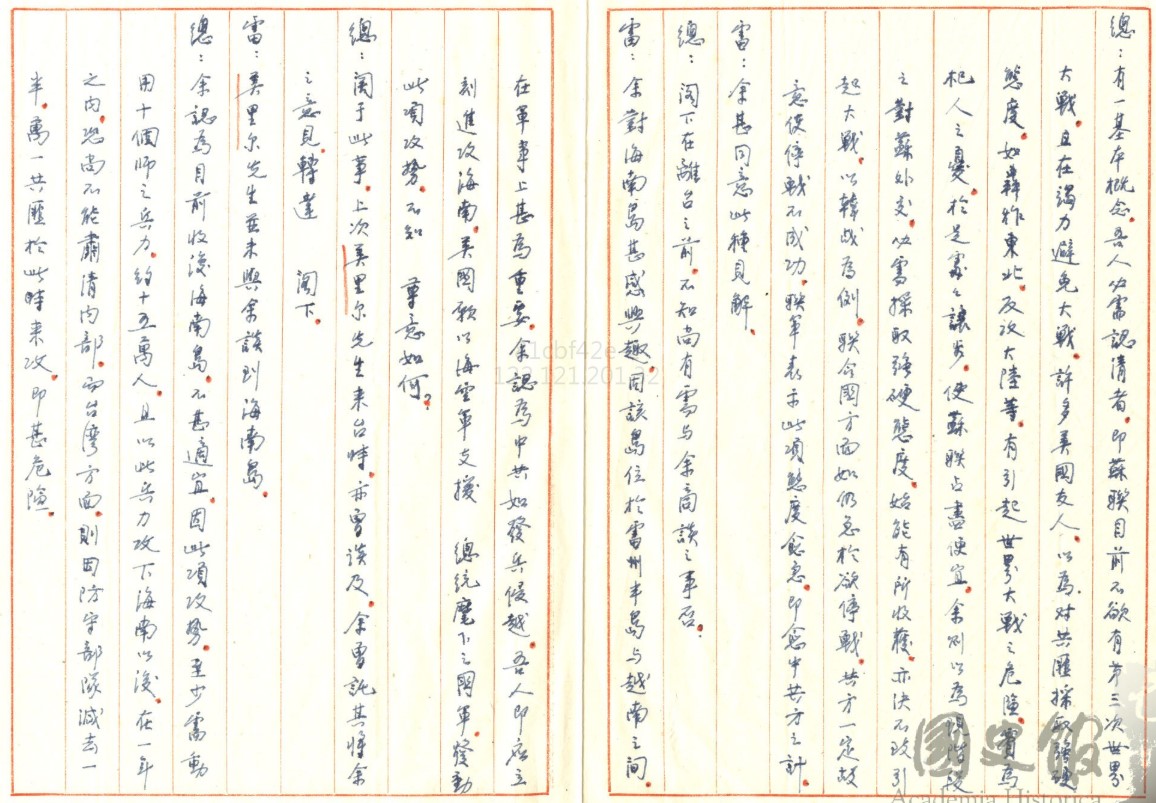 總：有一基本概念，吾人必需認清者，即蘇聯目前不欲有第三次世界
大戰，且在竭力避免大戰，許多美國友人，以為，對共匪採取強硬
態度，如轟炸東北，反攻大陸等，有引起世界大戰之危險，實為
杞人之憂，於是處處讓步，使蘇聯占盡便宜，余則以為現階段
之對蘇外交，必需採取強硬態度，始能有所收穫，亦決不致引
起大戰，以韓戰為例，聯合國方面如仍急於欲停戰，共方一定故
意使停戰不成功，聯軍表示此項態度愈急，即愈中共方之計，
雷：余甚同意此種見解，
總：閣下在離台之前，不知尚有需与余商談之事否？
雷：余對海南島甚感興趣，因該島位於雷州半島与越南之間，
在軍事上甚為重要，余認為中共如發兵侵越，吾人即應立
刻進攻海南，美國願以海空軍支援 總統麾下之國軍，發動
此項攻勢，不知 尊意如何？
總：関于此事，上次美里尔先生来台時，亦曾談及，余曾託其將余
之意見，轉達 閣下，
雷：美里尔先生並未與余談到海南島，
總：余認為目前收復海南島，不甚適宜，因此項攻勢，至少需動
用十個師之兵力，約十五萬人，且以此兵力攻下海南以後，在一年
之內，恐尚不能肅清內部，而台灣方面，則因防守部隊減去一
半，萬一共匪於此時来攻，即甚危險，
國史館
Academia Historica
1cbf42e